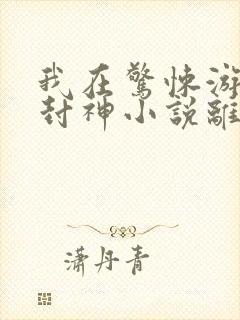 我在驚悚游
封神小說離
瀟丹青